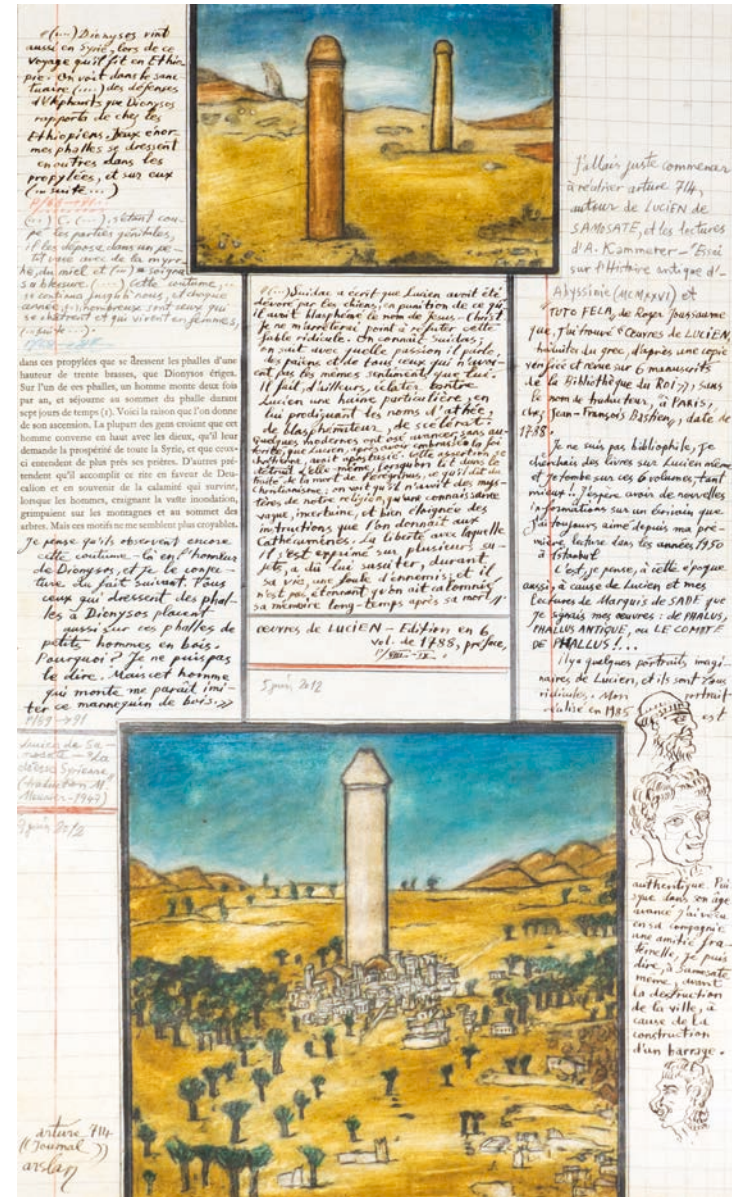 «(...) Dionysos vint
aussi en Syrie, lors de ce
voyage qu'il fit en Ethio-
pie. On voit dans le sanc-
tuaire (....) des défenses
d'éléphants que Dionysos
rapporta de chez les
Ethiopiens. Deux énor-
mes phalles se dressent
en outres dans les
propylées, et sur eux
(... suite ...)
(...) C. (...), s'étant cou-
pé les parties génitales,
il les déposa dans un pe-
tit vase avec de la myrr-
he, du miel et (...) soigna
sa blessure. (...) Cette coutume,
se continua jusqu'à nous, et chaque
année, (..) nombreux sont ceux qui
se châtrent et qui vivent en femmes,
(.. suite ...).
dans ces propylées que se dressent les phalles d'une
hauteur de trente brasses, que Dionysos érigea.
Sur l'un de ces phalles, un homme monte deux fois
par an, et séjourne au sommet du phalle durant
sept jours de temps (1). Voici la raison que l'on donne
de son ascension. La plupart des gens croient que cet
homme converse en haut avec les dieux, qu'il leur
demande la prospérité de toute la Syrie, et que ceux-
ci entendent de plus près ses prières. D'autres pré-
tendent qu'il accomplit ce rite en faveur de Deu-
calion et en souvenir de la calamité qui survint,
lorsque les hommes, craignant la vaste inondation,
grimpaient sur les montagnes et au sommet des
arbres. Mais ces motifs ne me semblent plus croyables.
Je pense qu'ils observent encore
cette coutume-là en l'honneur
de Dionysos, et je le conjec-
ture du fait suivant. Tous
ceux qui dressent des phal-
les à Dionysos placent
aussi sur ces phalles de
petits hommes en bois.
Pourquoi? Je ne puis pas
le dire. Mais cet homme
qui monte me paraît imi-
ter ce mannequin de bois.»
P/89→91
Lucien de Sa-
mosate - "La
déesse Syrienne"
(traduction M.
Meunier-1947)
juin 2012
arture 714
((Journal))
arslan
«(...) Suidas a écrit que Lucien avoit été
dévoré par les chiens, en punition de ce qu'
il avoit blasphémé le nom de Jésus-Christ.
Je ne m'arrêterai point à réfuter cette
fable ridicule. On connaît Suidas;
on sait avec quelle passion il parle,
des païens et de tous ceux qui n'avoi-
ent pas les mêmes sentimens que lui.
Il fait, d'ailleurs, éclater contre
Lucien une haine particulière, en
lui prodiguant les noms d'athée,
de blasphémateur, de scélérat.
Quelques modernes ont osé avancer, sans au-
torité, que Lucien, après avoir embrassé la foi
chrétienne, avoit apostasié. Cette assertion se
détruit d'elle-même, lorsqu'on lit dans le
traité de la mort de Peregrinus, ce qu'il dit du
Christianisme: on voit qu'il n'avoit des mys-
tères de notre religion, qu'une connaissance
vague, incertaine, et bien éloignée des
instructions que l'on donnait aux
Cathécumènes. La liberté avec laquelle
il s'est exprimé sur plusieurs su-
jets, a dû lui susciter, durant
sa vie, une foule d'ennemis; et il
n'est pas étonnant qu'on ait calomnié
sa mémoire long-temps après sa mort».
œuvres de LUCIEN - Edition en 6
vol. de 1788, préface,
P/VIII-IX.
5 juin 2012
J'allais juste commencer
à réaliser arture 714,
autour de LUCIEN de
SAMOSATE, et les lectures
d'A. Kammerer - "Essai
sur l'Histoire antique d'-
Abyssinie (MCMXXVI) et
TUTO FELA, de Roger Joussaume
que j'ai trouvé «Œuvres de LUCIEN,
traduites du grec, d'après une copie
vérifiée et revue sur 6 manuscrits
de la Bibliothèque du ROI», sans
le nom de traducteur, à PARIS,
chez Jean-François Bastien, daté de
1788.
Je ne suis pas bibliophile, je
cherchais des livres sur Lucien même
et je tombe sur ces 6 volumes, tant
mieux!. J'espère avoir de nouvelles
informations sur un écrivain que
j'ai toujours aimé depuis ma pré-
mière lecture dans les années 1950
à Istanbul.
C'est, je pense, à cette époque
aussi, à cause de Lucien et mes
lectures de Marquis de SADE que
je signais mes œuvres: de PHALUS,
PHALLUS ANTIQUE, ou LE COMTE
DE PHALLUS!...
Il y a quelques portraits imagi-
naires de Lucien, et ils sont tous
ridicules. Mon portrait
réalisé en 1985 est
authentique. Pui
sque dans son âge
avancé j'ai vécu
en sa compagnie
une amitié fra-
ternelle, je puis
dire, à Samosate
même, avant
la destruction
de la ville, à
cause de la
construction
d'un barrage.